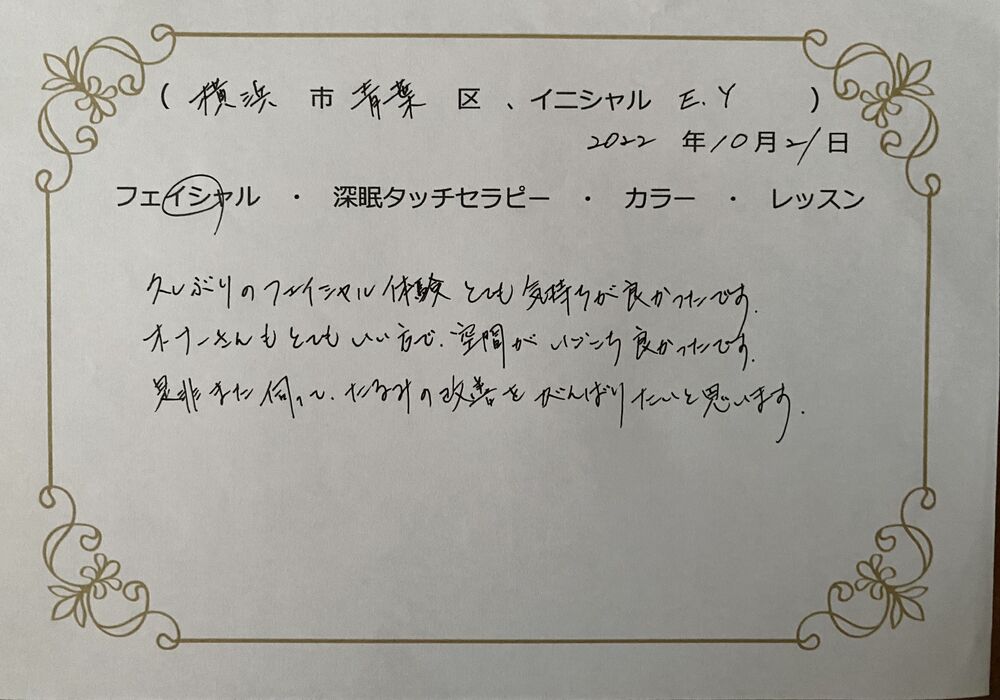 ( 横浜 市 青葉 区 、イニシャル E.Y )
2022 年 10 月 21 日
フェイシャル ・ 深眠タッチセラピー ・ カラー ・ レッスン
久しぶりのフェイシャル体験とても気持ちが良かったです。
オーナーさんもとてもいい方で、空間がいごこち良かったです。
是非また伺って、たるみの改善をがんばりたいと思います。